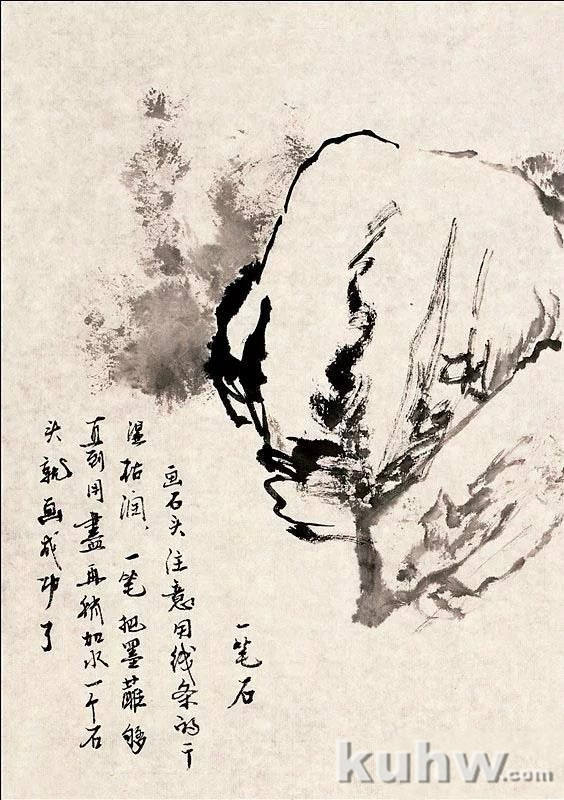 一笔石
画石头注意用线条的干
湿枯润，一笔把墨蘸够
直到用盡再稍加水一个石
头就画成功了
kuhw.com